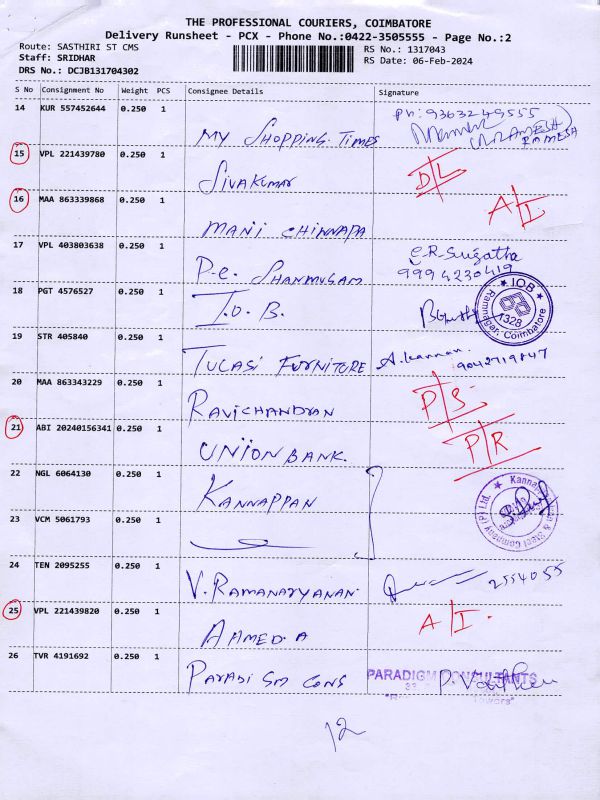 THE PROFESSIONAL COURIERS, COIMBATORE
Delivery Runsheet - PCX - Phone No.:0422-3505555 - Page No.:2
Route: SASTHIRI ST CMS RS No.: 1317043
Staff: SRIDHAR RS Date: 06-Feb-2024
DRS No.: DCJB131704302
S No Consignment No Weight PCS Consignee Details Signature
14 KUR 557452644 0.250 1 MY SHOPPING TIMES Ph: 9363249555
RAMESH
15 VPL 221439780 0.250 1 SIVAKUMAR D/L
16 MAA 863339868 0.250 1 MANI CHINNAPA A/I.
17 VPL 403803638 0.250 1 P.e. SHANMUGAM e.R.Sugatha
9994230419
18 PGT 4576527 0.250 1 I.O.B. IOB
1328
Ramnagar, Coimbatore
19 STR 405840 0.250 1 TULASI FURNITURE A.kannan.
9042719847
20 MAA 863343229 0.250 1 RAVICHANDRAN P/S.
21 ABI 20240156341 0.250 1 UNION BANK. P/R
22 NGL 6064130 0.250 1 KANNAPPAN
23 VCM 5061793 0.250 1
Steel Company (P) Ltd.
24 TEN 2095255 0.250 1 V.RAMANAYANAN. 2554055
25 VPL 221439820 0.250 1 AHMED.A A/I.
26 TVR 4191692 0.250 1 Paradism Cons PARADIGM CONSULTANTS
12